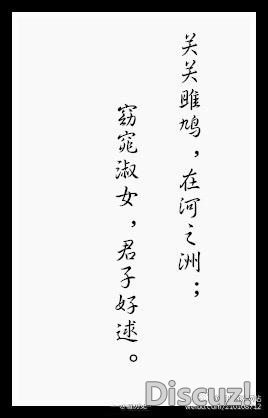 关关雎鸠，在河之洲；
窈窕淑女，君子好逑。
Discuz!